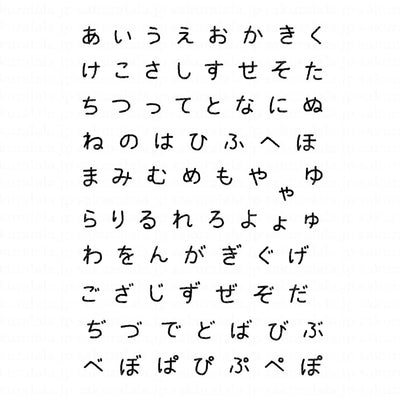 あ い う え お か き く
け こ さ し す せ そ た
ち つ っ て と な に ぬ
ね の は ひ ふ へ ほ
ま み む め も や ゃ ゆ
ら り る れ ろ よ ょ ゅ
わ を ん が ぎ ぐ げ
ご ざ じ ず ぜ ぞ だ
ぢ づ で ど ば び ぶ
べ ぼ ぱ ぴ ぷ ぺ ぽ